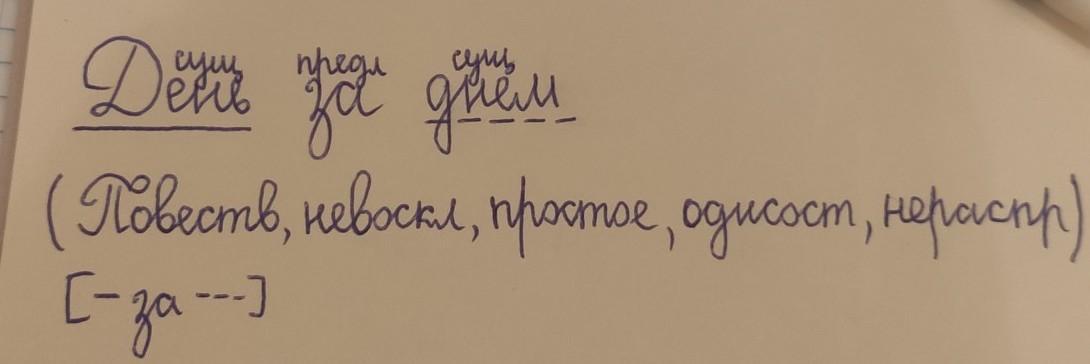 сущ предл сущ
День за днём
(Повеств, невоскл, простое, одисост, нераспр)
[- за ---]